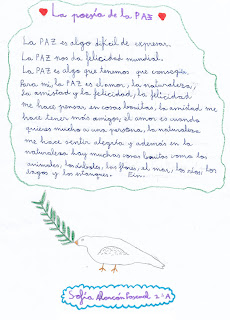 La poesía de la PAZ
La PAZ es algo difícil de expresar.
La PAZ nos da felicidad mundial.
La PAZ es algo que tenemos que conseguir.
Para mí, la PAZ es el amor, la naturaleza,
la amistad y la felicidad, la felicidad
me hace pensar en cosas bonitas, la amistad me
hace tener más amigos, el amor es cuando
quieres mucho a una persona, la naturaleza
me hace sentir alegría y además en la
naturaleza hay muchas cosas bonitas como los
animales, los árboles, las flores, el mar, los ríos, los
lagos y los estanques. Fin.
Sofía Alarcón Pascual 2º A